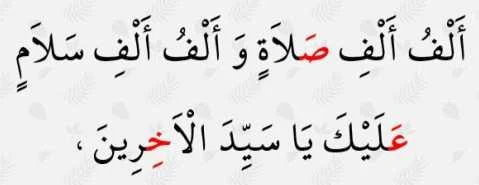 أَلْفُ أَلْفِ صَلاَةٍ وَ أَلْفُ أَلْفِ سَلاَمٍ
عَلَيْكَ يَا سَيِّدَ الْاَخِرِينَ ،